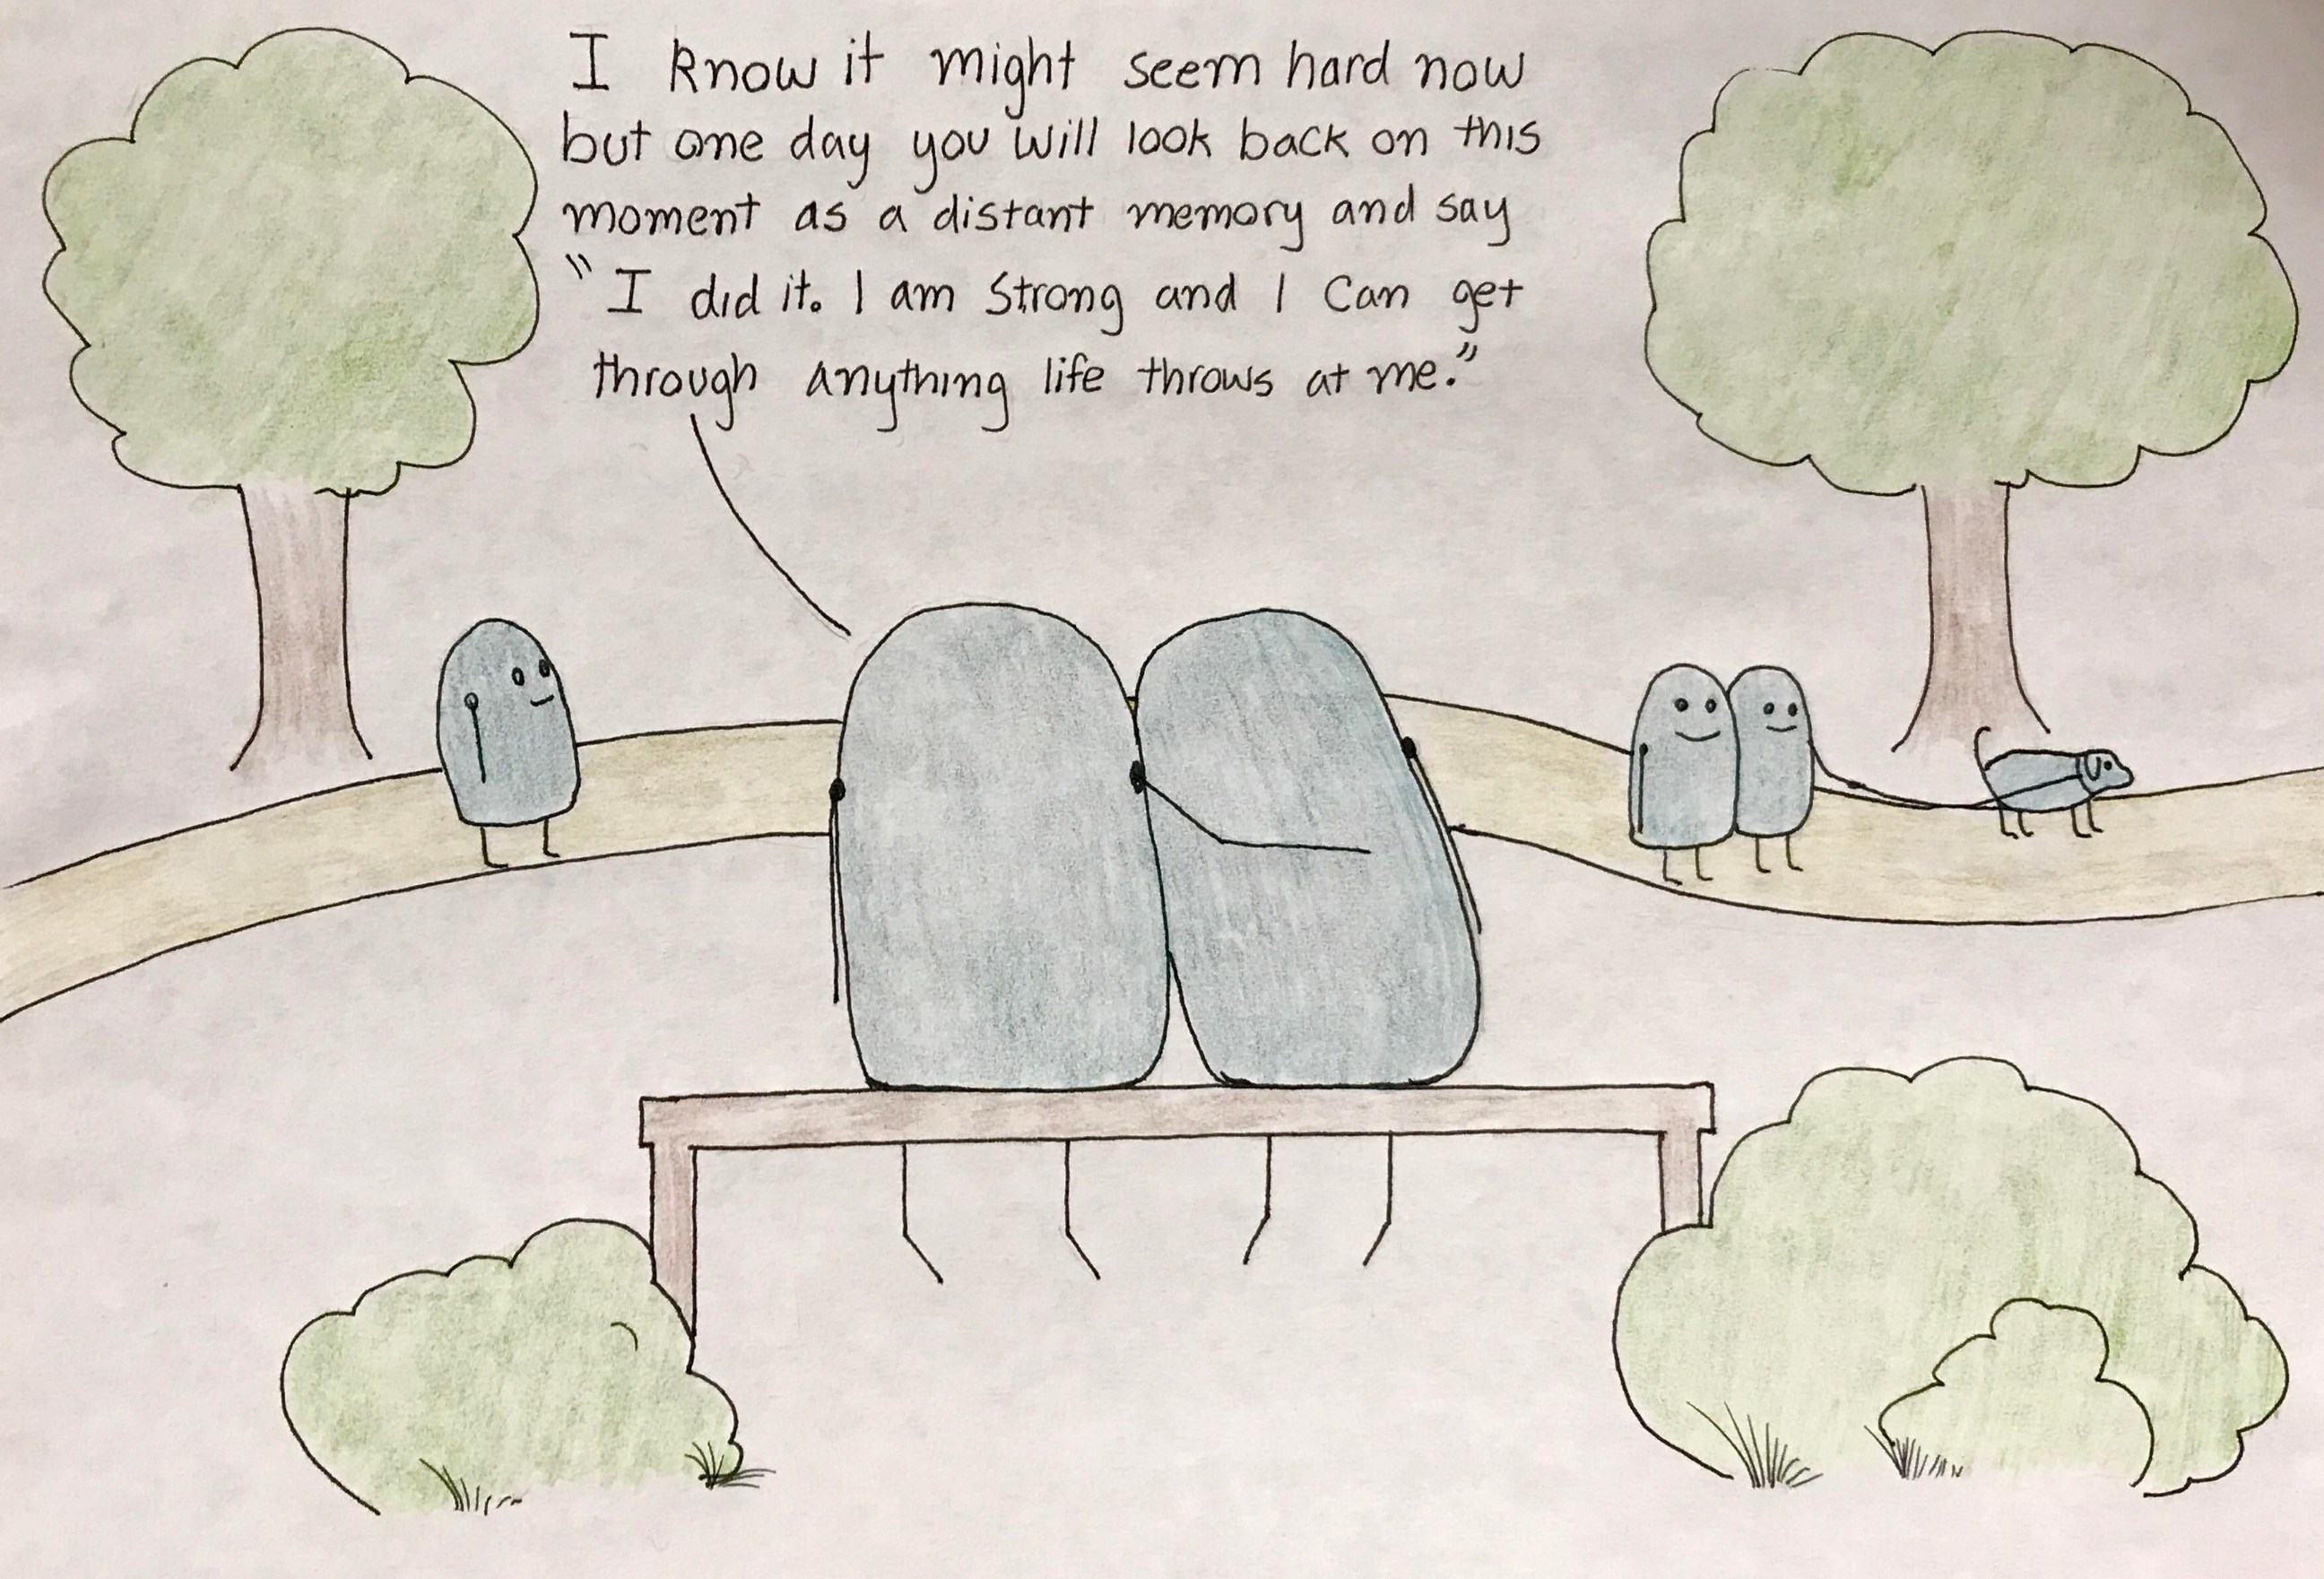 I know it might seem hard now
but one day you will look back on this
moment as a distant memory and say
"I did it. I am strong and I can get
through anything life throws at me."